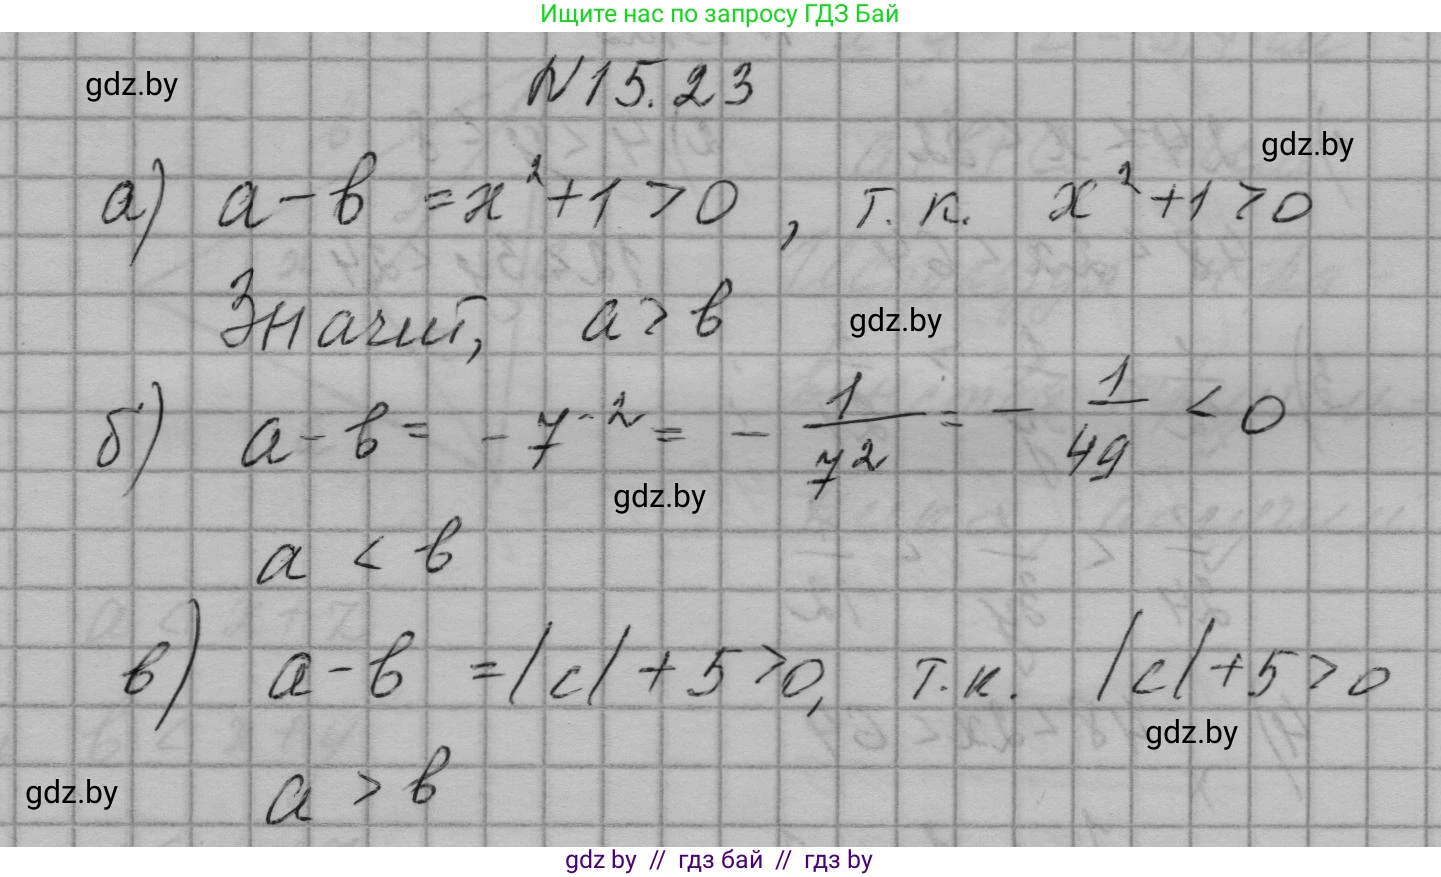 Ищите нас по запросу ГДЗ Бай
gdz.by
N15.23
gdz.by
а) a-b =x²+1>0, т.к. x²+1>0
Значит, a>b
gdz.by
б) a-b= -7⁻²= - 1/7² = - 1/49 < 0
gdz.by
a < b
в) a-b =|c|+5>0, т.к. |c|+5>0
gdz.by
a > b
gdz.by
gdz by // гдз бай // гдз by